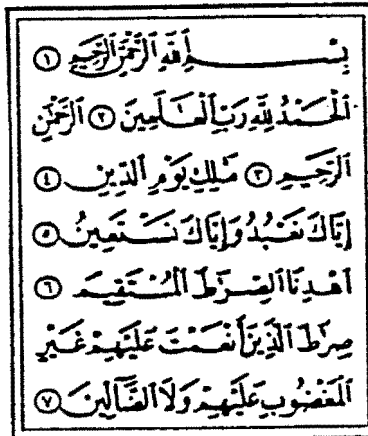 بِسْمِ ٱللَّهِ ٱلرَّحْمَٰنِ ٱلرَّحِيمِ ١
ٱلْحَمْدُ لِلَّهِ رَبِّ ٱلْعَٰلَمِينَ ٢ ٱلرَّحْمَٰنِ
ٱلرَّحِيمِ ٣ مَٰلِكِ يَوْمِ ٱلدِّينِ ٤
إِيَّاكَ نَعْبُدُ وَإِيَّاكَ نَسْتَعِينُ ٥
ٱهْدِنَا ٱلصِّرَٰطَ ٱلْمُسْتَقِيمَ ٦
صِرَٰطَ ٱلَّذِينَ أَنْعَمْتَ عَلَيْهِمْ غَيْرِ
ٱلْمَغْضُوبِ عَلَيْهِمْ وَلَا ٱلضَّآلِّينَ ٧